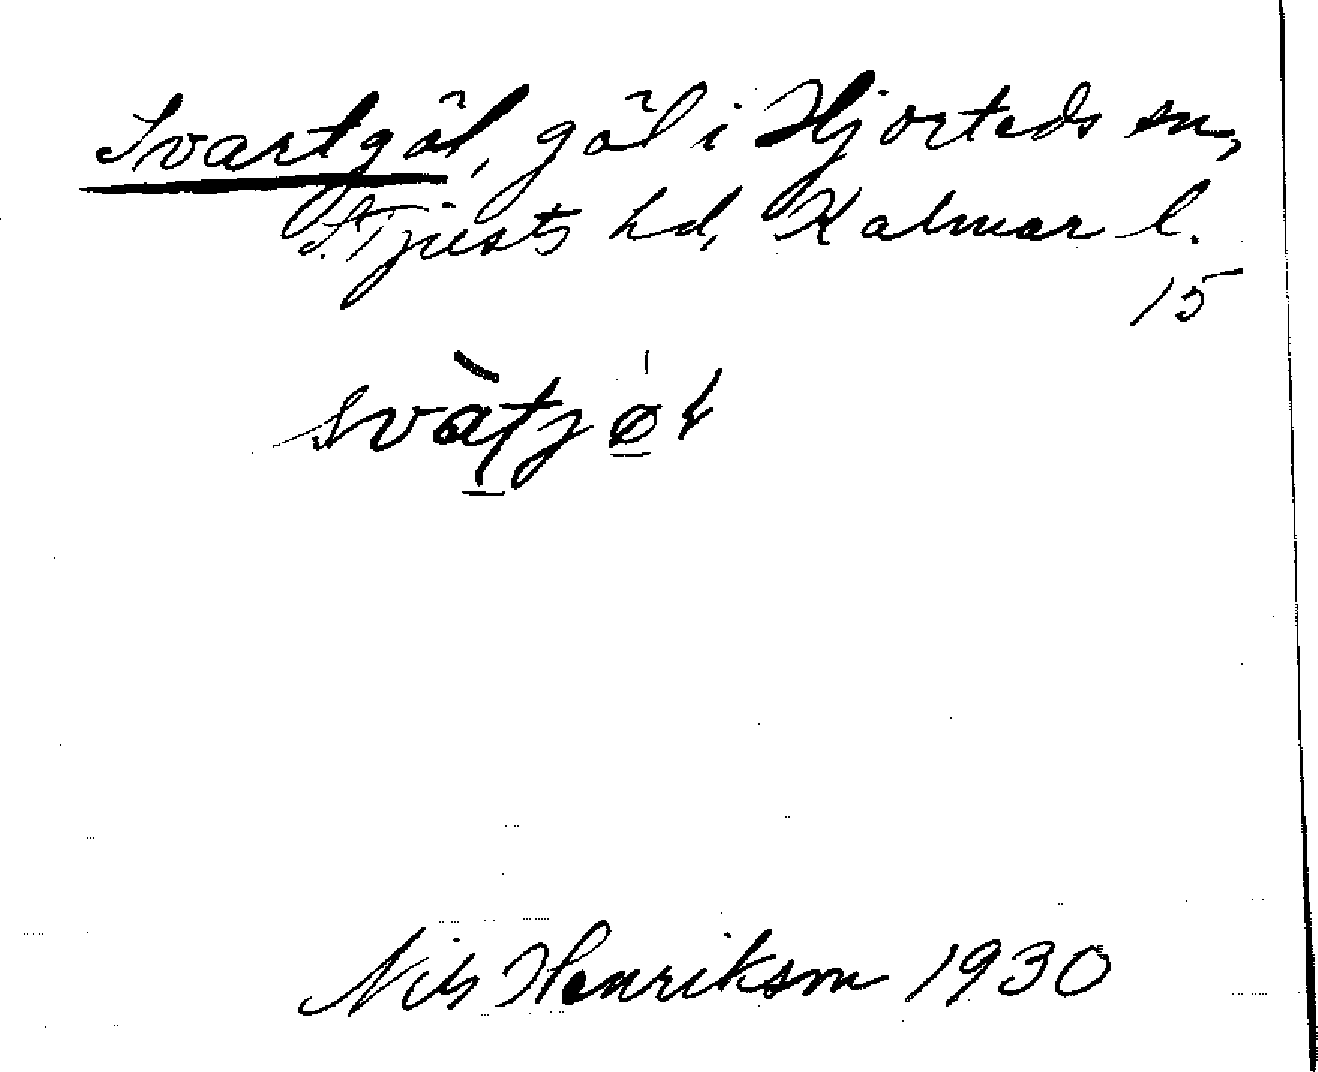 Svartgöl, göl i Hjorteds sn,
S. Tjusts hd, Kalmar l.
15
Nils Henrikson 1930